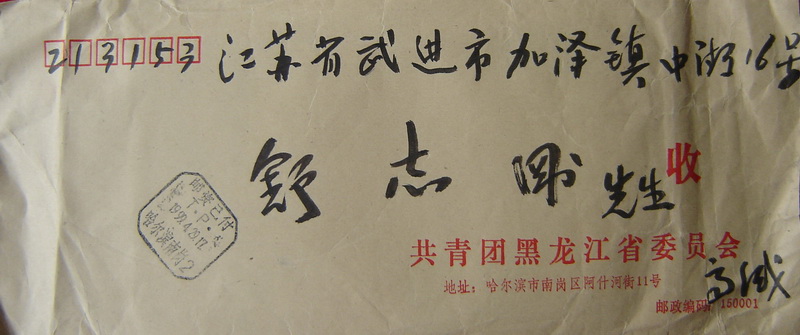 213153 江苏省武进市加泽镇中街16号
舒志刚先生收
邮资已付
T.P.
1999.4.29.17
哈尔滨南岗2
共青团黑龙江省委员会
地址：哈尔滨市南岗区阿什河街11号
高城
邮政编码：150001